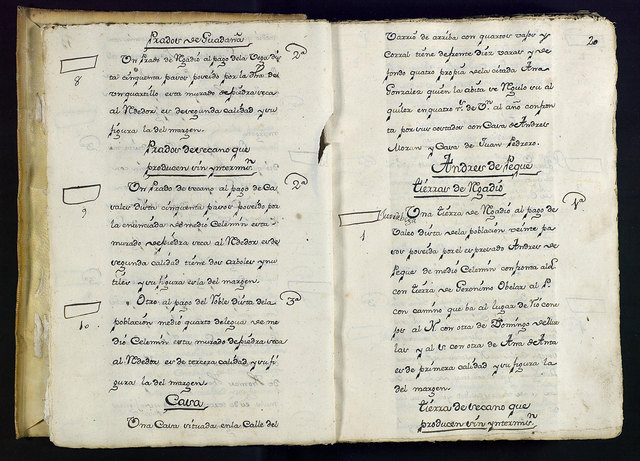 Prados de Guadaña
Un Prado de Regadio al pago dela Vega dis
ta cinquenta pasos poseido por la dha. de
un quartillo esta murado de piedra seca
al Rededor es de segunda calidad y su
figura la del margen.
2ª
8
Prados de secano que
producen sin yntermisⁿ
Un Prado de secano al pago de Ca
vales dista cinquenta pasos poseido por
la enunciada de medio Celemin esta
murado de piedra seca al Rededor es de
segunda calidad tiene dos arboles ynu
tiles y su figura es la del margen.
2ª
9
Otro al pago del Roble dista dela
población medio quarto de legua de me
dio Celemin esta murado de piedra seca
al Rededor es de tercera calidad y su fi
gura la del margen.
3ª
10
Casa
Una Casa situada en la Calle del
20
Varrio de arriba con quarto vajo y
Corral tiene de frente diez varas y de
fondo quatro propia de la citada Ana
Gonzalez quien la abita Regulo su al
quiler en quatro rˢ. de Vⁿ al año confron
ta por sus costados con Casa de Andres
Moran y Casa de Juan Pedrero.
Andres de Peque
tierras de Regadio
Una tierra de Regadio al pago de
Valeo dista dela población veinte pa
sos poseida por el expresado Andres de
Peque de medio Celemin confronta al L
con tierra de Geronimo Obelar al P
con camino que ba al lugar de Rio cone
jos al N con otra de Domingo de llue
las y al S con otra de Ana de Anta
es de primera calidad y su figura la
del margen.
1ª
1
tierra de secano que
producen sin yntermisⁿ